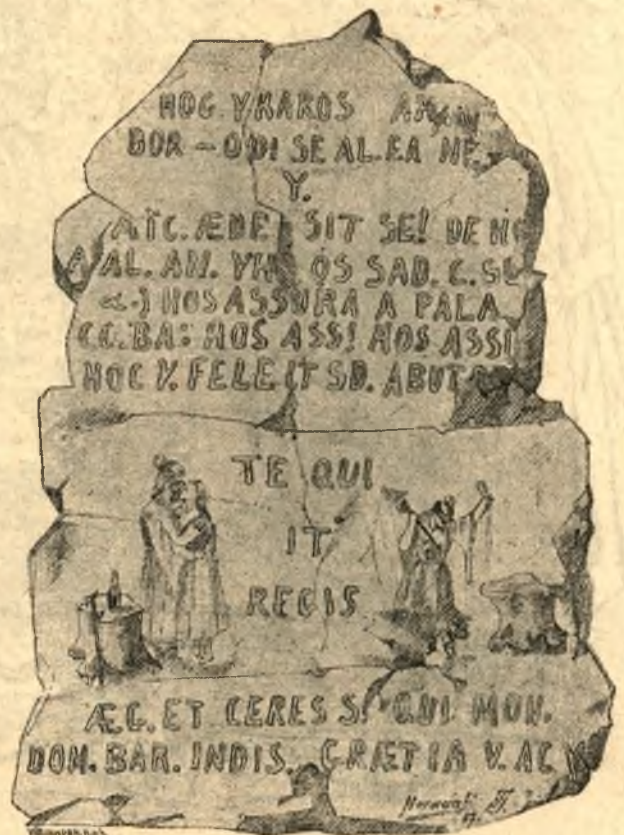 HOC. YKAROS
BOR – O DI SE AL. EA NE.
Y.
ATC. ÆDE SIT SE! DE
AL. AN. YH OS SAD. C. SU
HOS ASSURA A PALA
CC. BA: HOS ASS! HOS ASSI
HOC V. FELE IT SD. ABUT
TE QUI
IT
REGIS
ÆG. ET CERES S! QUI MON.
DON. BAR. INDIS. GRÆTIA V. AC